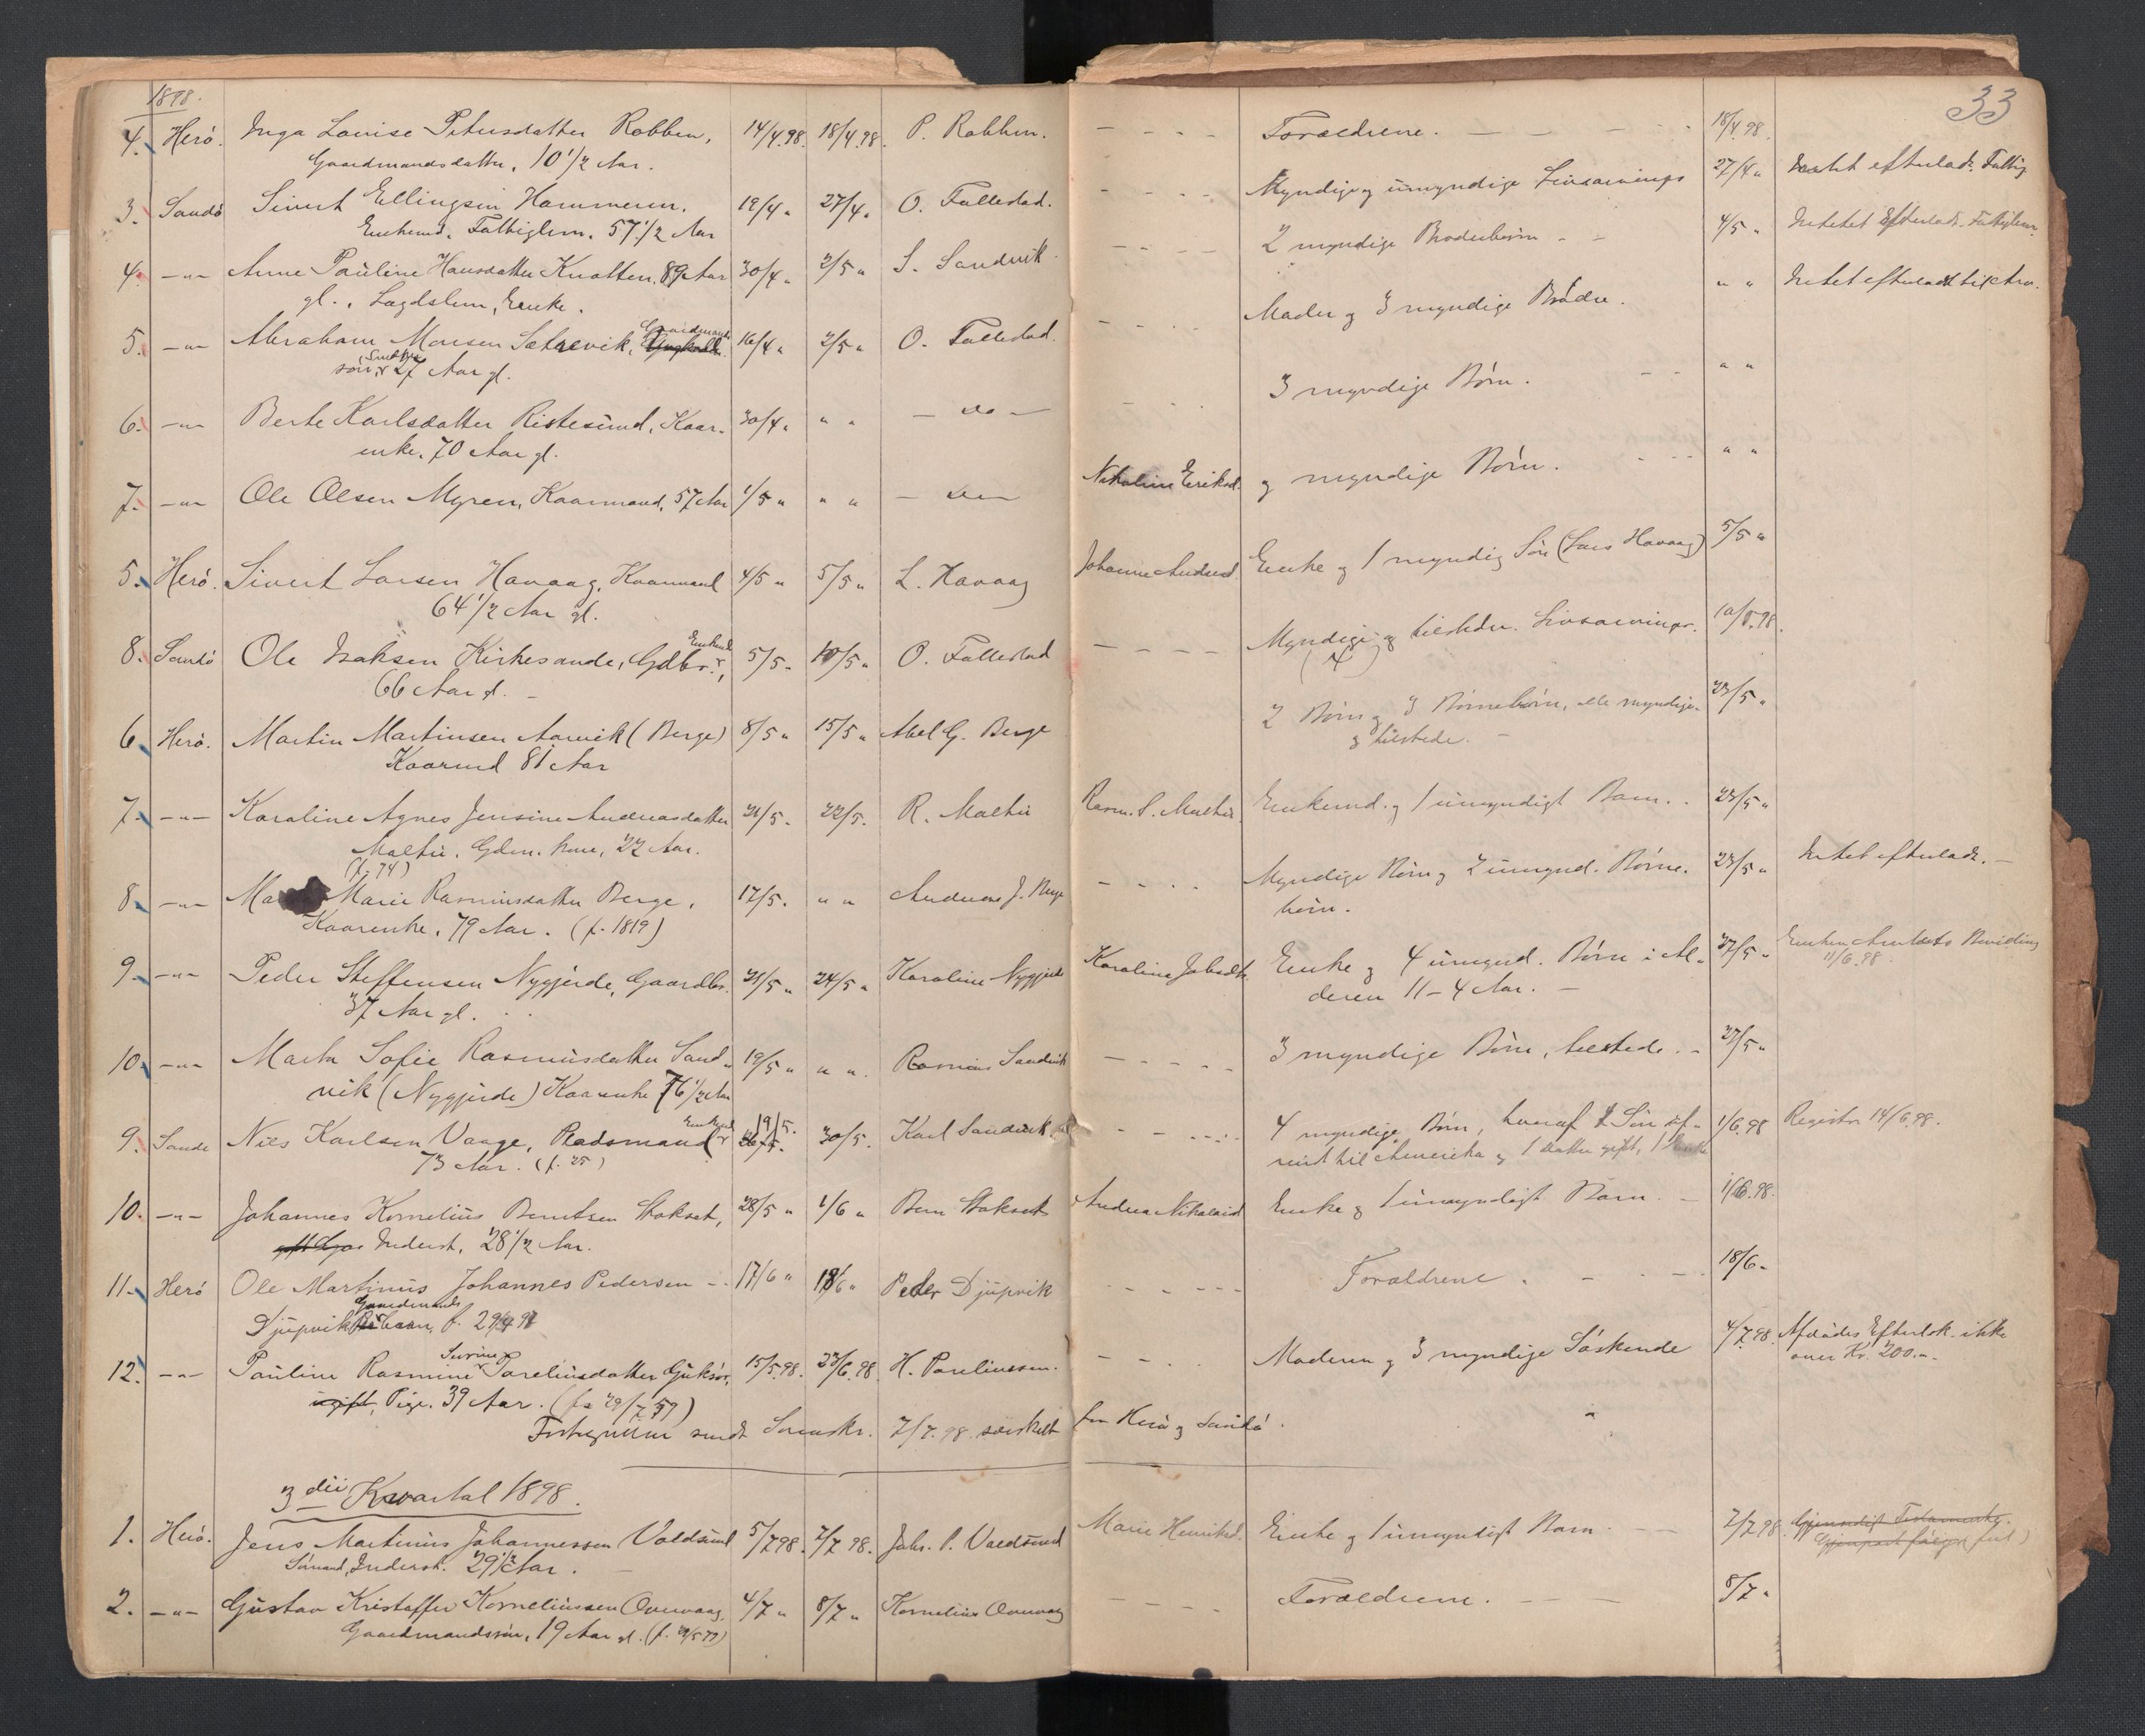 1898.
33
4. Herö. Inga Louise Petersdatter Robben, 14/4.98. 18/4.98. P. Robben. - - - - Forældrene. - - - 18/4.98.
Gaardmandsdatter, 10 1/2 Aar.
3. Sandö Sivert Ellingsen Hammeren. 19/4 " 27/4 " O. Fallestad. - - - - Myndige og umyndige Livsarvinger 27/4 " Intet efterladt. Fattig
Enkemd. Fattiglem. 57 1/2 Aar
4. -"- Anne Pauline Hansdatter Knotten, 89 Aar 30/4 " 2/5 " S. Sandvik. - - - - 2 myndige Broderbørn - - 4/5 " Intet Efterladt Fattiglem.
gl., Lægdslem, Enke.
5. -"- Abraham Monsen Sætrevik, Gaardmands 16/4 " 2/5 " O. Fallestad. - - - - Moder og 3 myndige Brødre. " " Intet efterladt til Arv.
søn, 27 Aar gl.
6. -"- Berte Karlsdatter Ristesund, Kaar- 30/4 " " " - do - - - - 3 myndige Børn. - - " "
enke, 70 Aar gl.
7. -"- Ole Olsen Myren, Kaarmand, 57 Aar 1/5 " " " - do - Nikoline Eriksd. og myndige Børn. - - " "
5. Herö. Sivert Larsen Havaag, Kaarmand 4/5 " 5/5 " L. Havaag Johanne Andersd. Enke og 1 myndig Søn (Lars Havaag) 5/5 "
64 1/2 Aar gl.
8. Sandö Ole Isaksen Kirkesande, Gdbr., Enkemd 5/5 " 10/5 " O. Fallestad - - - - Myndige og tilstedev. Livsarvinger. 10/5.98.
66 Aar gl. - (4)
6. Herö. Martin Martinsen Aarvik (Berge) 8/5 " 15/5 " Abel G. Berge 2 Børn og 3 Børnebørn, alle myndige 23/5 "
Kaarmd 81 Aar og tilstede. -
7. -"- Karoline Agnes Jensine Andreasdatter 21/5 " 22/5 " R. Moltu Rasm. S. Moltu. Enkemd. og 1 umyndigt Barn. . 23/5 "
Moltu. Gdm. kone, 22 Aar.
(f. 74)
8. -"- Marie Rasmusdatter Berge. 17/5 " " " Andreas J. Berge - - - - Myndige Børn og 2 umynd. Børne- 23/5 " Intet efterladt. -
Kaarenke, 79 Aar. (f. 1819) børn.
9. -"- Peder Steffensen Nygjerde, Gaardbr. 21/5 " 24/5 " Karoline Nygjerde Karoline Jakobsdtr. Enke og 4 umynd. Børn i Al- 27/5 " Enken Amtets Bevilling
37 Aar gl. deren 11-4 Aar. - 11/6.98.
10. -"- Marta Sofie Rasmusdatter Sand- 19/5 " " " Rasmus Sandvik - - - - 3 myndige Børn, tilstede. - 27/5 "
vik (Nygjerde) Kaarenke 76 1/2 Aar
9. Sande Nils Karlsen Vaage, Pladsmand Enkemd 19/5. 30/5. Karl Sandvik - - - - 4 myndige Børn, hvoraf 1 Søn af- 1/6.98 Registr. 14/6.98.
73 Aar. (f. 25) reist til Amerika og 1 datter gift, 1
10. -"- Johannes Kornelius Berntsen Stokset, 28/5 " 1/6 " Bern Stokset Andrea Nikolaisd Enke og 1 umyndigt Barn. - 1/6.98.
Inderst, 28 1/2 Aar.
11. Herö Ole Martinus Johannes Pedersen - 17/6 " 18/6 " Peder Djupvik - - - - Forældrene. - - - 18/6 "
Djupvik Gaardmands barn, f. 29/4 97
12. -"- Pauline Rasmine Severine Parelinsdatter Gjuksör, 15/5.98. 23/6.98 H. Parelinssen. - - - Moderen og 3 myndige Søskende 4/7.98. Afdødes Efterlok. ikke
ugift, Pige. 39 Aar. (f. 29/7 59) over Kr. 200.-
Fortegnelse sendt Sorenskr. 7/7.98. særskilt for Herö og Sandö.
3die Kvartal 1898.
1. Herö. Jens Martinus Johannessen Voldsund 5/7 98. 7/7 98. Johs. P. Voldsund Marie Henriksd. Enke og 1 umyndigt Barn. - - 7/7.98.
Sömand, Inderst. 29 1/2 Aar.
2. -"- Gustav Kristoffer Korneliussen Overvaag, 4/7 " 8/7 " Kornelius Overvaag - - - - Forældrene. - - - 8/7 "
Gaardmandssøn, 19 Aar gl. (f. 29/5 79)